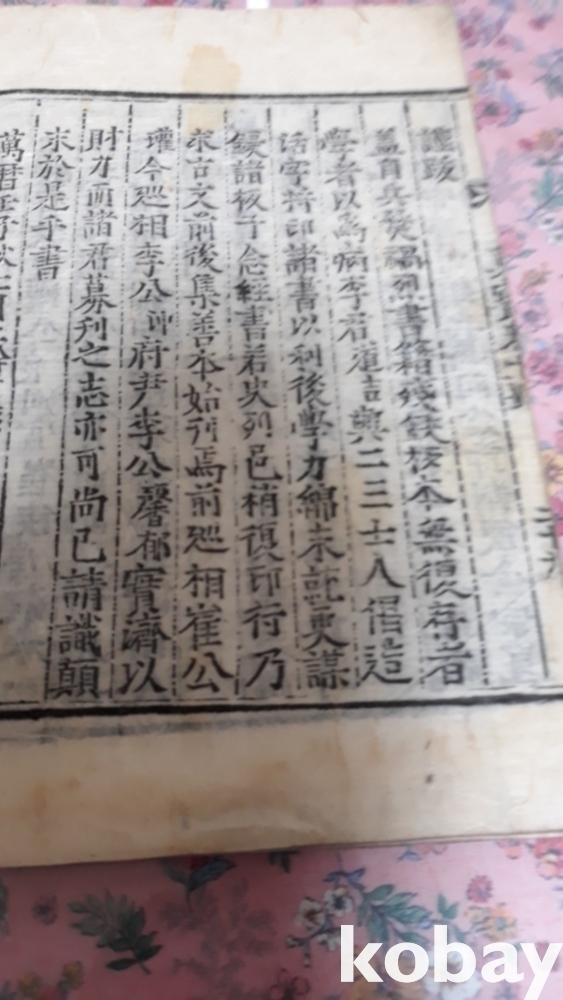 謹跋
蓋自兵燹禍烈書籍殘缺板本無復存者
學者以爲病李君道吉與二三士人倡造
活字將印諸書以利後學力綿未訖更謀
鋟諸板于念經書若史列邑稍復印行乃
求古文前後集善本始刊焉前巡相崔公
瓘今巡相李公 府尹李公馨郁實濟以
財力而諸君募刊之志亦可尚已請識顚
末於是乎書
萬曆
kobay